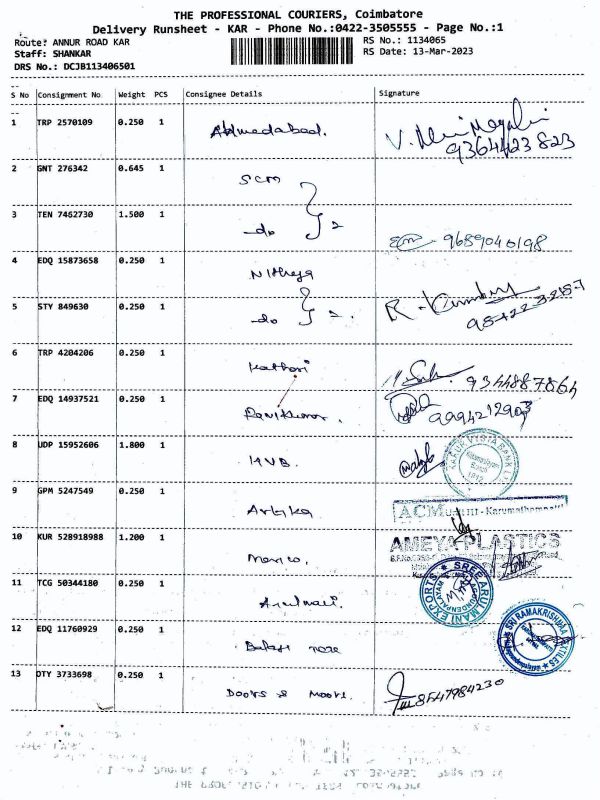 THE PROFESSIONAL COURIERS, Coimbatore
Delivery Runsheet - KAR - Phone No.:0422-3505555 - Page No.:1
Route: ANNUR ROAD KAR
Staff: SHANKAR
DRS No.: DCJB113406501
RS No.: 1134065
RS Date: 13-Mar-2023
S No Consignment No Weight PCS Consignee Details Signature
1 TRP 2570109 0.250 1 Ahmedabad.
9364423823
2 GNT 276342 0.645 1 SCM
3 TEN 7462730 1.500 1 -do- 2
9689040198
4 EDQ 15873658 0.250 1 Nithya
5 STY 849630 0.250 1 -do- 2.
6 TRP 4204206 0.250 1 Kathori 9344887864
7 EDQ 14937521 0.250 1 Ravikumar. 9994212903
8 UDP 15952606 1.800 1 KVB.
KARUR VYSYA BANK
9 GPM 5247549 0.250 1
ACM - Karumathampatti
10 KUR 528918988 1.200 1
AMEYA PLASTICS
11 TCG 50344180 0.250 1 Arulmani.
SREE ARULMANI EXPORTS
12 EDQ 11760929 0.250 1
SRI RAMAKRISHNA TEXTILES
13 DTY 3733698 0.250 1 Doors &